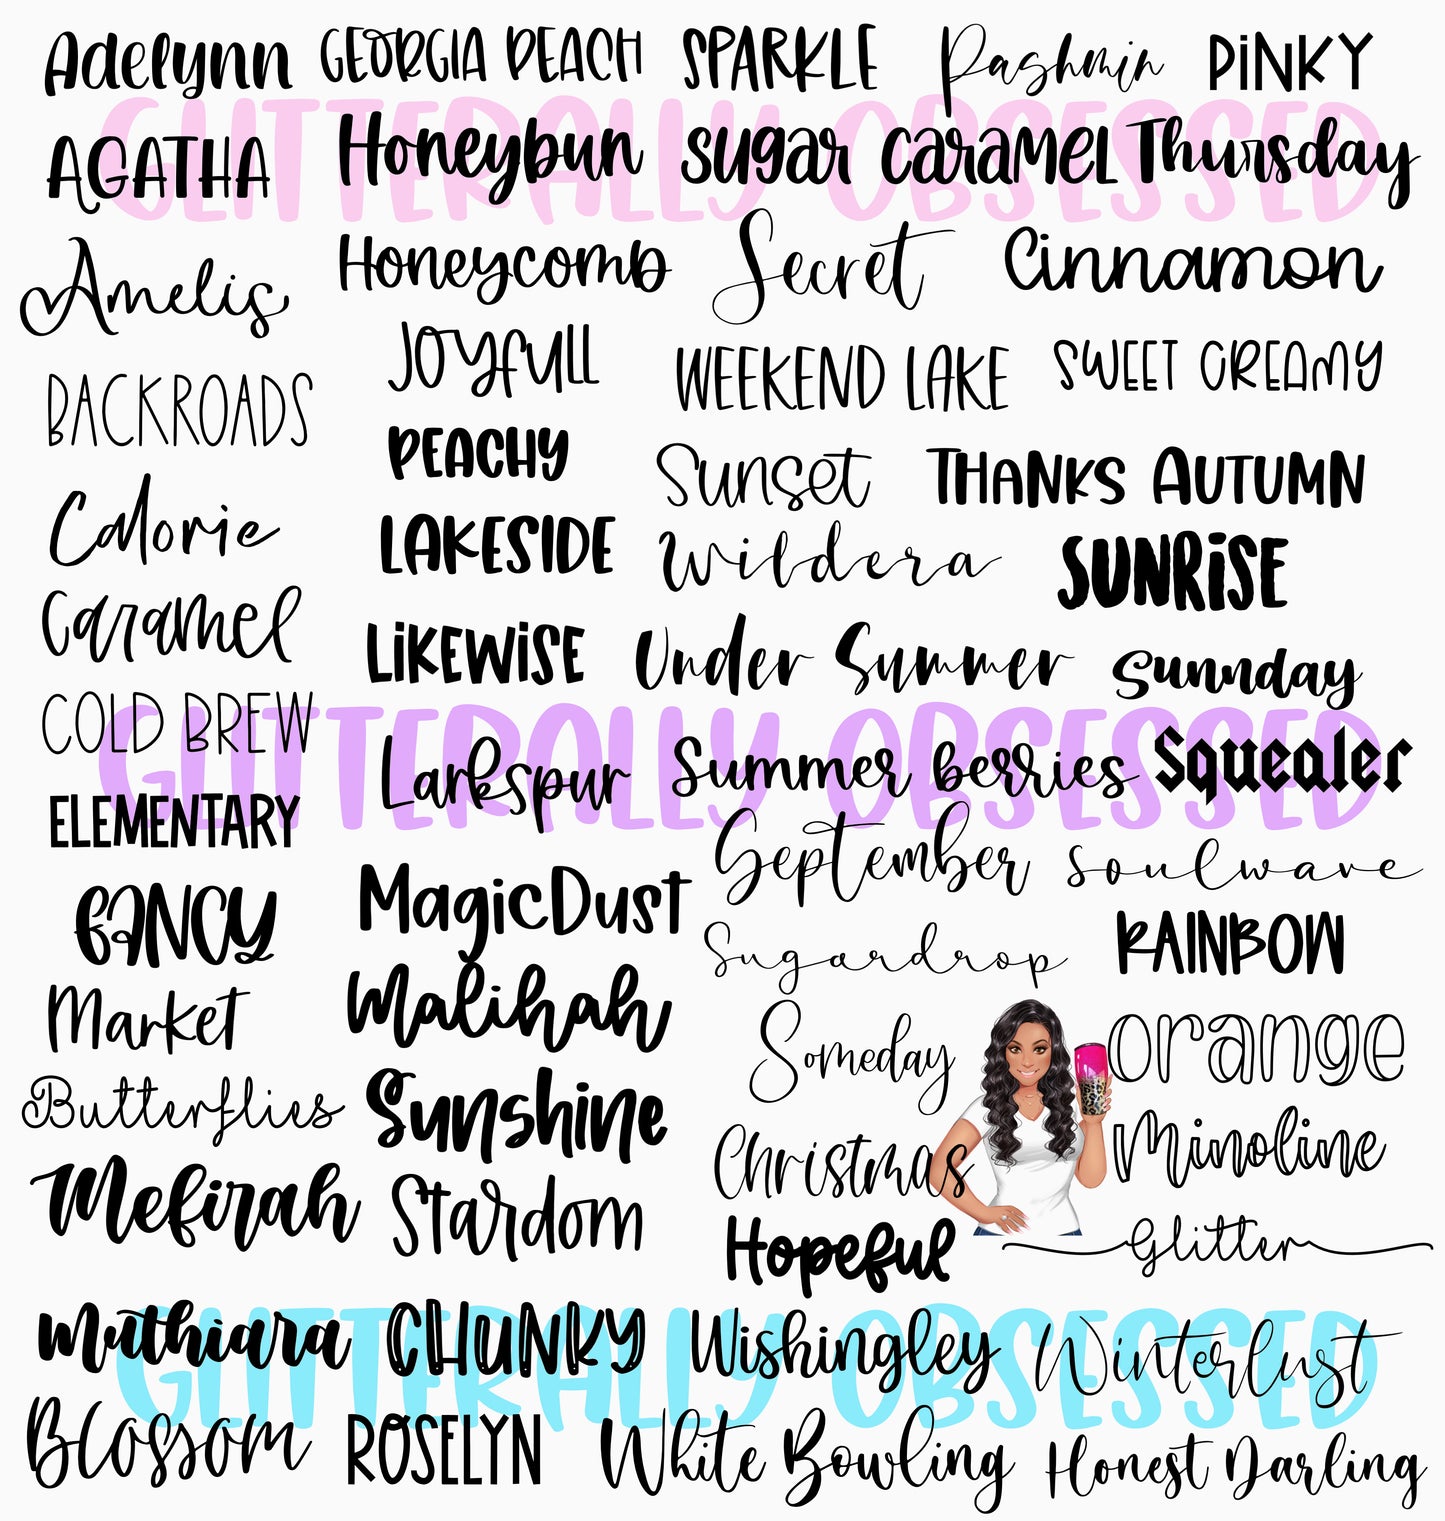 Adelynn GEORGIA PEACH SPARKLE Pashmin PiNKY
GLITTERALLY OBSESSED
AGATHA Honeybun sugar caramel Thursday
Amelis Honeycomb Secret Cinnamon
JOYFULL WEEKEND LAKE SWEET CREAMY
BACKROADS PEACHY Sunset THANKS AUTUMN
Calorie LAKESIDE Wildera SUNRiSE
Caramel LiKEWiSE Under Summer Sunnday
COLD BREW
GLITTERALLY OBSESSED
Larkspur Summer berries Squealer
ELEMENTARY September Soulwave
FANCY MagicDust Sugardrop RAINBOW
Market Malihah Someday orange
Butterflies Sunshine Christmas Minoline
Mefirah Stardom Hopeful Glitter
GLITTERALLY OBSESSED
Muthiara CHUNKY Wishingley Winterlust
Blossom ROSELYN White Bowling Honest Darling